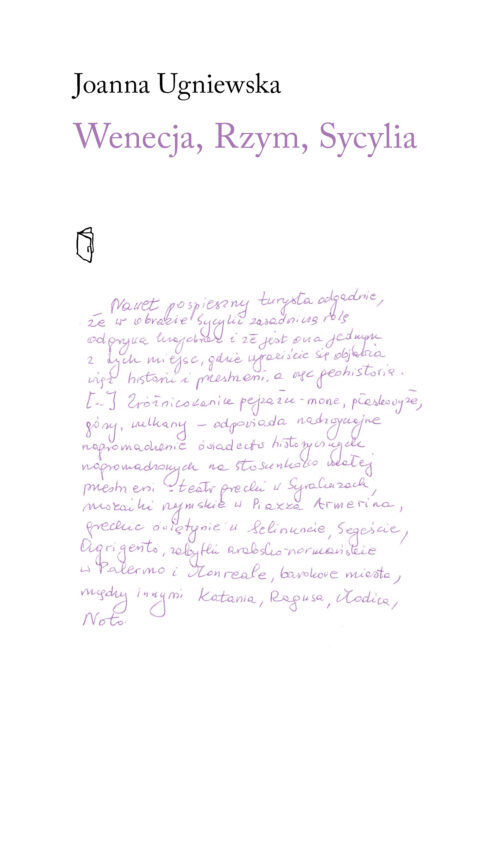 Joanna Ugniewska
Wenecja, Rzym, Sycylia
Nawet pospieszny turysta odgadnie,
że w obrazie Sycylii zasadniczą rolę
odgrywa krajobraz i że jest ona jednym
z tych miejsc, gdzie wyraziście się objawia
więź historii i przestrzeni, a więc geohistoria.
[...] Zróżnicowanie pejzażu – morze, płaskowyże,
góry, wulkany – odpowiada
nagromadzenie świadectw historycznych
nagromadzonych na stosunkowo małej
przestrzeni: teatr grecki w Syrakuzach,
mozaiki rzymskie w Piazza Armerina,
greckie świątynie w Selinuncie, Segeście,
Agrigento, zabytki arabsko-normańskie
w Palermo i Monreale, barokowe miasta,
między innymi Katania, Ragusa, Modica,
Noto.